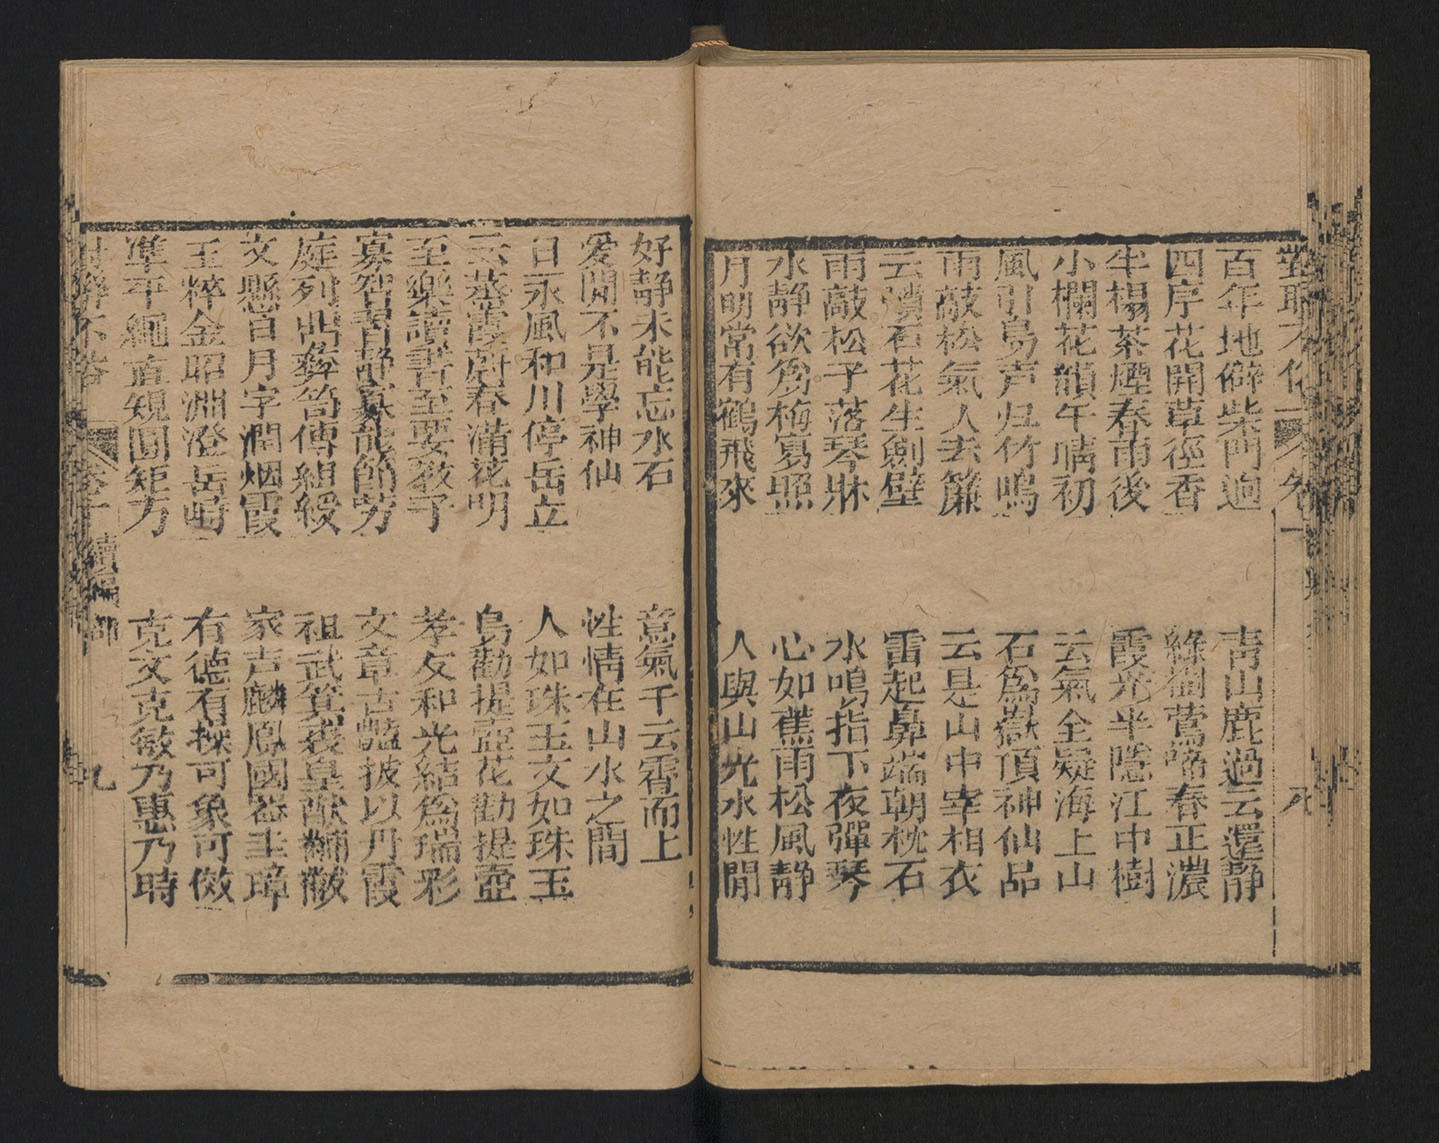 百年地僻柴門迥
青山鹿過云還靜
四序花開草徑香
綠樹鶯啼春正濃
半榻茶煙春雨後
霞光半隱江中樹
小欄花韻午晴初
云氣全疑海上山
風引鳥声归竹塢
石為嶽頂神仙品
雨敲松氣人去簾
云是山中宰相衣
云積石花生劍壁
雷起鼻端朝枕石
雨敲松子落琴牀
水鳴指下夜彈琴
水靜欲為梅寫照
心如蕉雨松風靜
月明常有鶴飛來
人與山光水性閒
好靜未能忘水石
意氣千云霄而上
愛閒不是學神仙
性情在山水之間
日永風和川停岳立
人如珠玉文如珠玉
云蒸霞蔚春滿花明
鳥勸提壺花勸提壺
至樂讀書至要教子
孝友和光結為瑞彩
寡智習靜寡能節労
文章古豔披以丹霞
庭列鼎彝笥傳組綬
祖武箕裘皇猷黼黻
文懸日月字潤烟霞
家声麟鳳國器圭璋
玉粹金昭淵澄岳峙
有德有操可象可傚
準平繩直規圓矩方
克文克敏乃惠乃時
續編卸
九